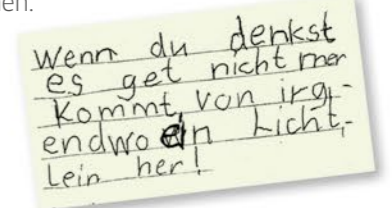 nen.
Wenn du denkst
es get nicht mer
kommt, von irg-
endwo ein Licht,-
lein her!